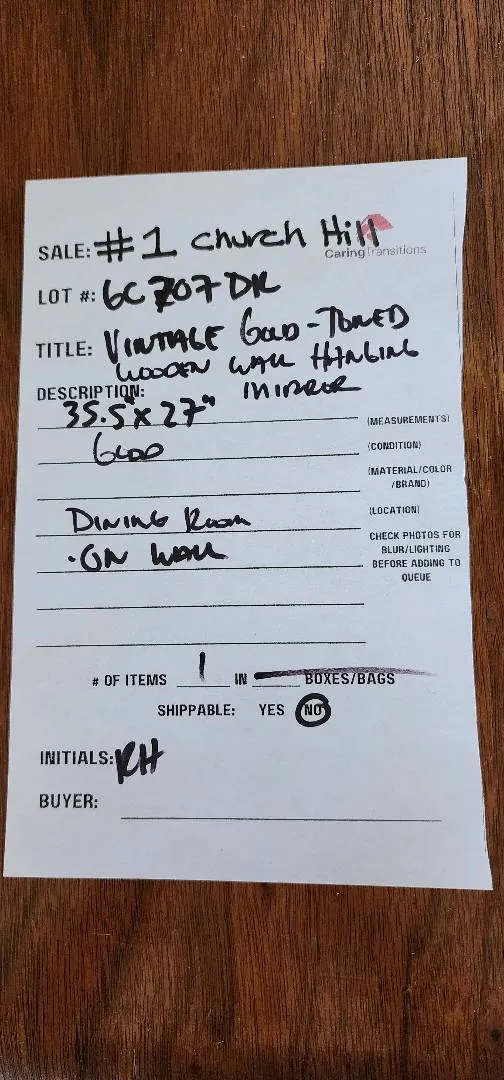 SALE: #1 Church Hill
CaringTransitions
LOT #: GC707DR
TITLE: VINTAGE GOLD-TONED
WOODEN WALL HANGING
MIRROR
DESCRIPTION:
35.5" x 27" (MEASUREMENTS)
GOOD (CONDITION)
(MATERIAL/COLOR
/BRAND)
DINING ROOM (LOCATION)
• ON WALL
CHECK PHOTOS FOR
BLUR/LIGHTING
BEFORE ADDING TO
QUEUE
# OF ITEMS 1 IN BOXES/BAGS
SHIPPABLE: YES NO
INITIALS: RH
BUYER: